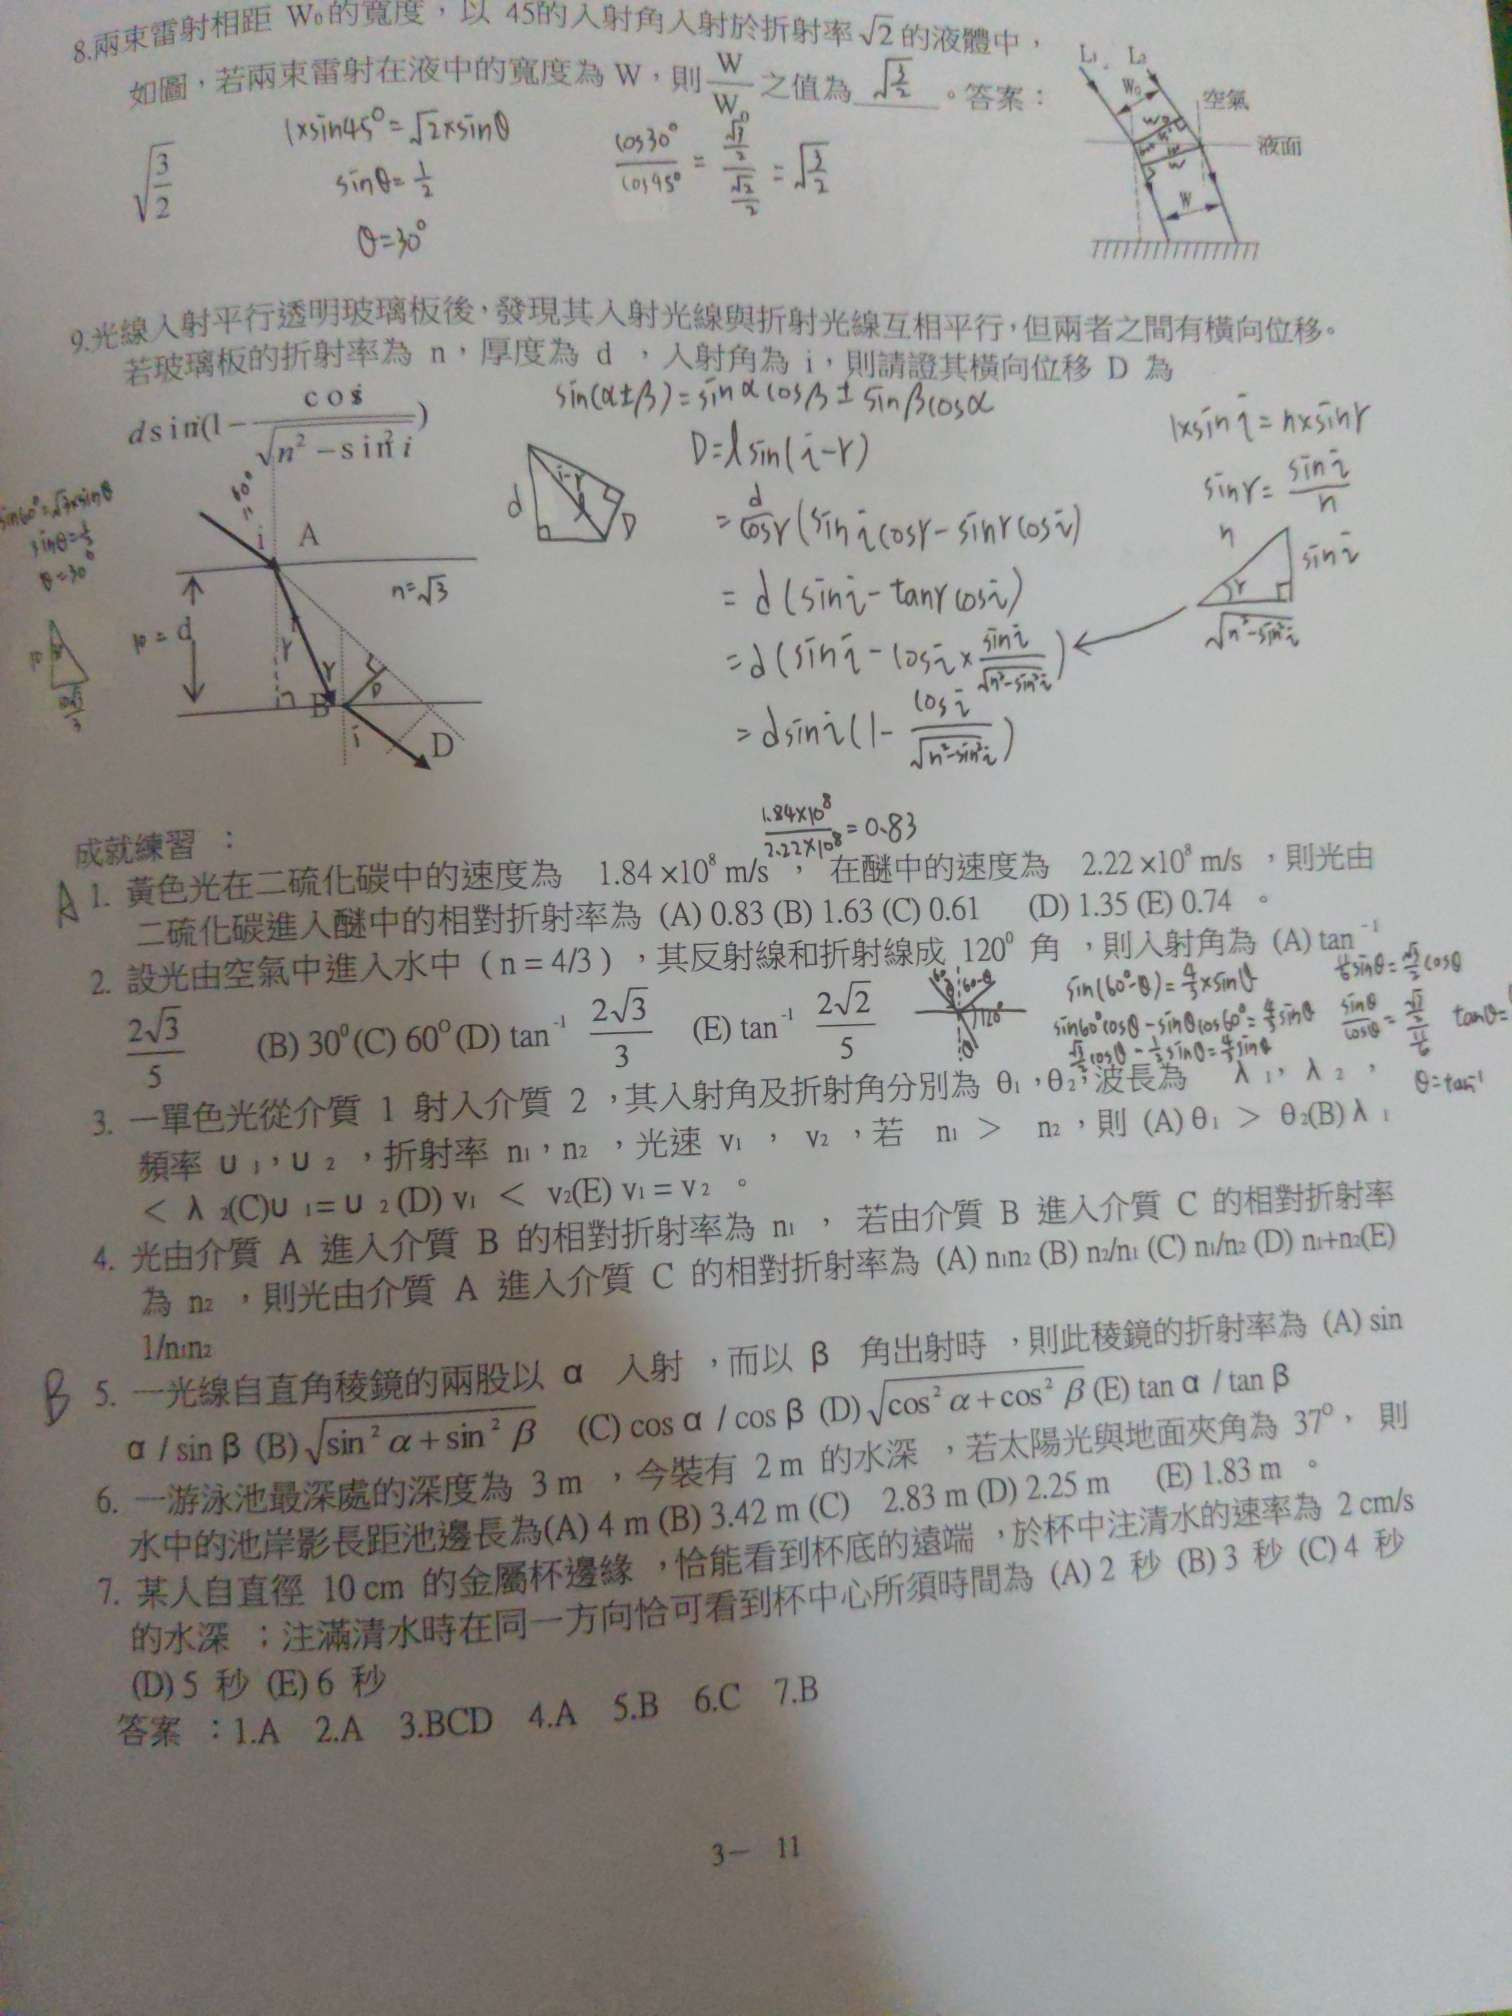 8.兩束雷射相距 W₀的寬度，以 45的入射角入射於折射率√2的液體中，
如圖，若兩束雷射在液中的寬度為 W，則 W/W₀ 之值為 √(3/2) 。答案：
√(3/2)
1×sin45°=√2×sinθ
sinθ=1/2
θ=30°
cos30°/cos45° = (√3/2)/(√2/2) = √(3/2)
L₁ L₂
W₀
空氣
液面
W
9.光線入射平行透明玻璃板後，發現其入射光線與折射光線互相平行，但兩者之間有橫向位移。
若玻璃板的折射率為 n，厚度為 d ，入射角為 i，則請證其橫向位移 D 為
d sin i(1- cos i/√(n²-sin² i))
sin(α±β)=sinαcosβ±sinβcosα
D=l sin(i-r)
= d/cosr (sin i cosr - sinr cos i)
= d(sin i - tanr cos i)
= d(sin i - cos i × sin i/√(n²-sin²i))
= d sin i(1- cos i/√(n²-sin²i))
1×sin i = n×sinr
sinr= sin i/n
n
sin i
r
√(n²-sin²i)
d
i-r
l
D
sin60°=√3×sinθ
sinθ=1/2
θ=30°
=60°
i A
n=√3
10=d
r
r
B
D
i
D
成就練習 ：
1.84×10⁸/2.22×10⁸=0.83
A 1. 黃色光在二硫化碳中的速度為 1.84 ×10⁸ m/s ， 在醚中的速度為 2.22 ×10⁸ m/s ，則光由
二硫化碳進入醚中的相對折射率為 (A) 0.83 (B) 1.63 (C) 0.61 (D) 1.35 (E) 0.74 。
2. 設光由空氣中進入水中 ( n = 4/3 ) ，其反射線和折射線成 120⁰ 角 ，則入射角為 (A) tan⁻¹
2√3/5 (B) 30⁰ (C) 60⁰ (D) tan⁻¹ 2√3/3 (E) tan⁻¹ 2√2/5
60-θ
120°
θ
sin(60°-θ)=4/3×sinθ
sin60°cosθ-sinθcos60°=4/3sinθ
√3/2cosθ-1/2sinθ=4/3sinθ
11/6sinθ=√3/2cosθ
sinθ/cosθ=(√3/2)/(11/6)
tanθ=
θ=tan⁻¹
3. 一單色光從介質 1 射入介質 2 ，其入射角及折射角分別為 θ₁ ，θ₂，波長為 λ ₁， λ ₂ ，
頻率 υ ₁，υ ₂ ，折射率 n₁，n₂ ，光速 v₁ ， v₂ ，若 n₁ ＞ n₂，則 (A) θ₁ ＞ θ₂(B) λ ₁
＜ λ ₂(C)υ ₁= υ ₂ (D) v₁ ＜ v₂(E) v₁ = v₂ 。
4. 光由介質 A 進入介質 B 的相對折射率為 n₁ ， 若由介質 B 進入介質 C 的相對折射率
為 n₂ ，則光由介質 A 進入介質 C 的相對折射率為 (A) n₁n₂ (B) n₂/n₁ (C) n₁/n₂ (D) n₁+n₂(E)
1/n₁n₂
B 5. 一光線自直角稜鏡的兩股以 α 入射 ，而以 β 角出射時 ，則此稜鏡的折射率為 (A) sin
α / sin β (B) √(sin² α + sin² β) (C) cos α / cos β (D) √(cos² α + cos² β) (E) tan α / tan β
6. 一游泳池最深處的深度為 3 m ，今裝有 2 m 的水深 ，若太陽光與地面夾角為 37⁰， 則
水中的池岸影長距池邊長為(A) 4 m (B) 3.42 m (C) 2.83 m (D) 2.25 m (E) 1.83 m 。
7. 某人自直徑 10 cm 的金屬杯邊緣 ，恰能看到杯底的遠端 ，於杯中注清水的速率為 2 cm/s
的水深 ；注滿清水時在同一方向恰可看到杯中心所須時間為 (A) 2 秒 (B) 3 秒 (C) 4 秒
(D) 5 秒 (E) 6 秒
答案 ：1.A 2.A 3.BCD 4.A 5.B 6.C 7.B
3－ 11